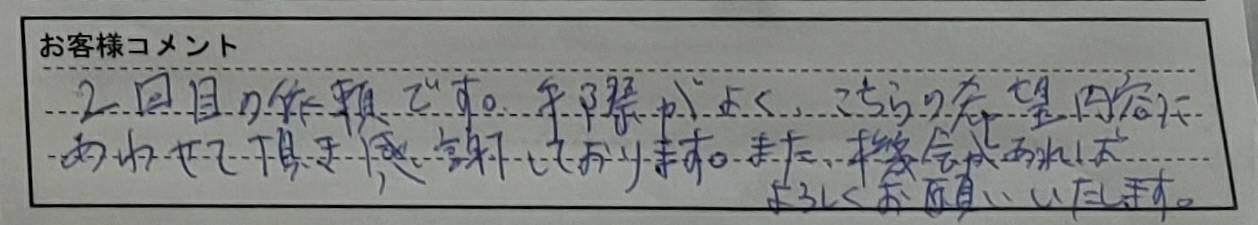 お客様コメント
2回目の依頼です。手際がよく、こちらの希望内容に
あわせて頂き感謝しております。また、機会があれば
よろしくお願いいたします。